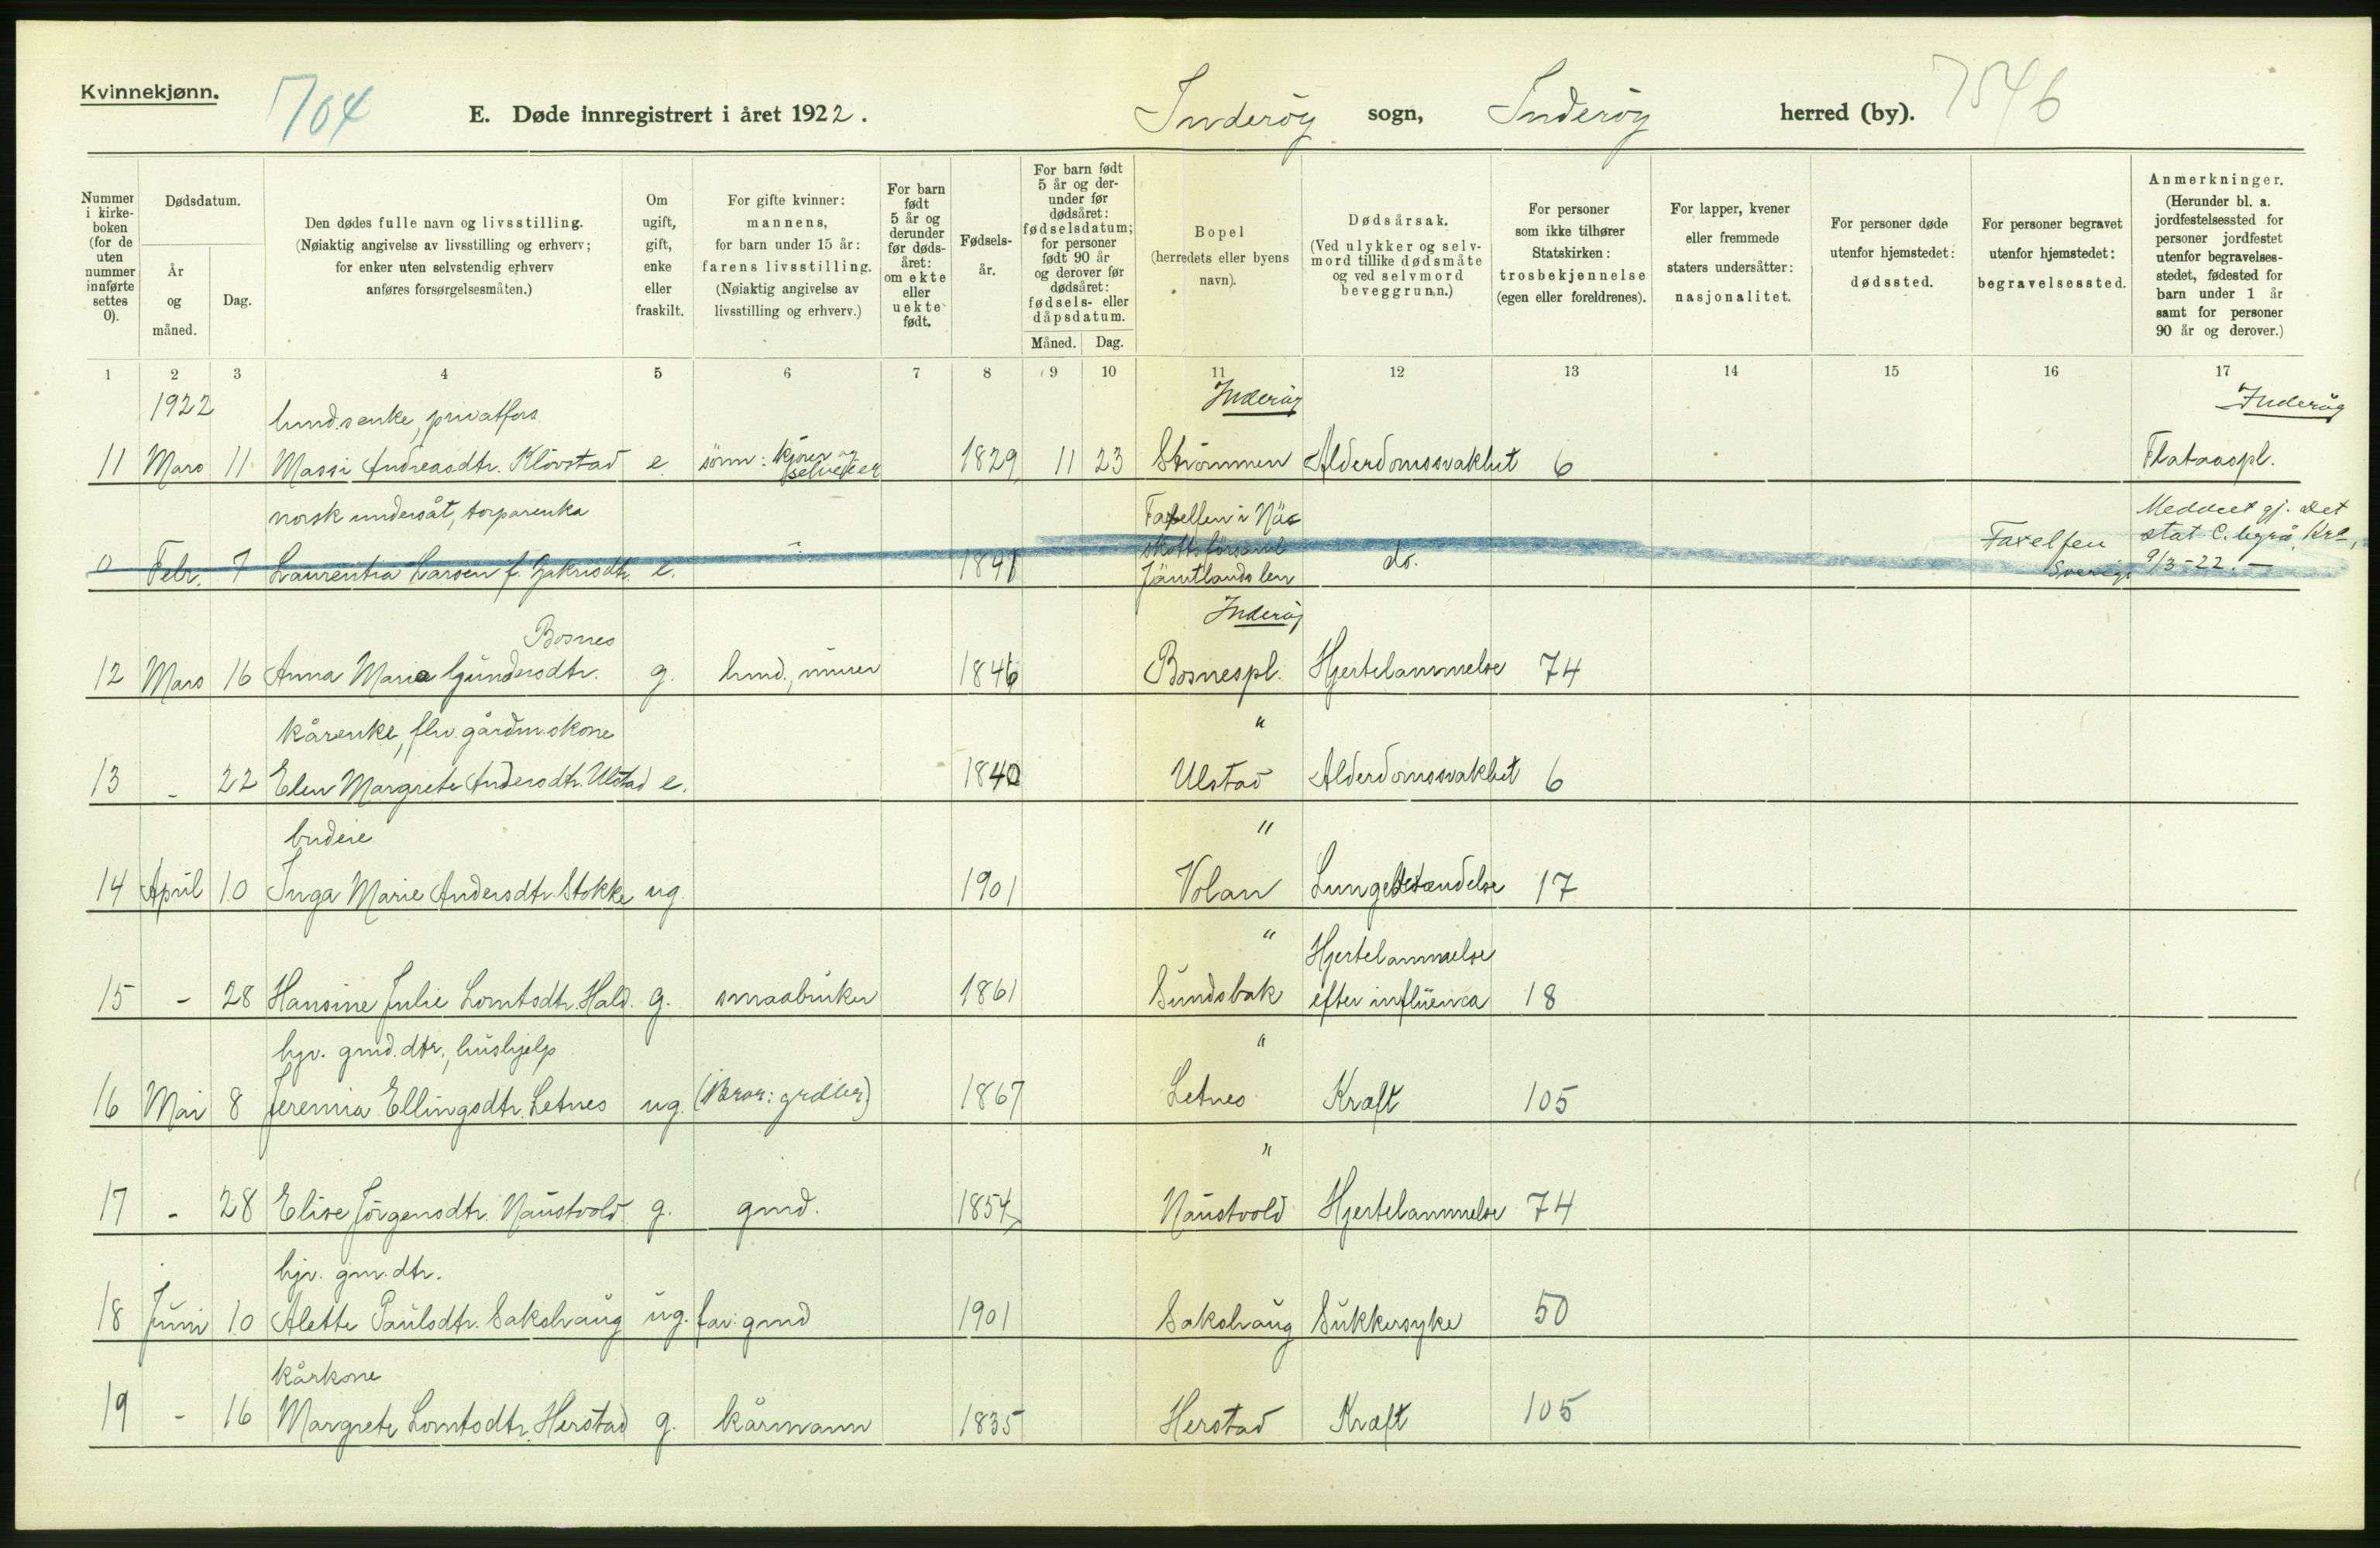 Kvinnekjønn.
704
E. Døde innregistrert i året 1922.
Inderøy sogn, Inderøy herred (by).
7546
Nummer i kirke-boken (for de uten nummer innførte settes 0).
Dødsdatum.
År og måned.
Dag.
Den dødes fulle navn og livsstilling.
(Nøiaktig angivelse av livsstilling og erhverv;
for enker uten selvstendig erhverv
anføres forsørgelsesmåten.)
Om ugift, gift, enke eller fraskilt.
For gifte kvinner:
mannens,
for barn under 15 år:
farens livsstilling.
(Nøiaktig angivelse av
livsstilling og erhverv.)
For barn født 5 år og derunder før døds-året: om ekte eller uekte født.
Fødsels-år.
For barn født 5 år og der-under før dødsåret: fødselsdatum; for personer født 90 år og derover før dødsåret: fødsels- eller dåpsdatum.
Måned. Dag.
Bopel
(herredets eller byens
navn).
Dødsårsak.
(Ved ulykker og selv-
mord tillike dødsmåte
og ved selvmord
beveggrunn.)
For personer
som ikke tilhører
Statskirken:
trosbekjennelse
(egen eller foreldrenes).
For lapper, kvener
eller fremmede
staters undersåtter:
nasjonalitet.
For personer døde
utenfor hjemstedet:
dødssted.
For personer begravet
utenfor hjemstedet:
begravelsessted.
Anmerkninger.
(Herunder bl. a.
jordfestelsessted for
personer jordfestet
utenfor begravelses-
stedet, fødested for
barn under 1 år
samt for personer
90 år og derover.)
1 2 3 4 5 6 7 8 9 10 11 12 13 14 15 16 17
1922 Inderøy Inderøy
husmd.s enke, privatfors
11 Mars 11 Massi Andreasdtr. Klövstad e. sönn: selveier 1829 11 23 Strömmen Alderdomssvakhet 6 Flataaspl.
norsk undersåt, torparenka
0 Febr. 7 Laurentia Larsen f. e. 1841 Jämtlands len do. Faxelfen Sverige
9/3-22.-
Bosnes Inderøy
12 Mars 16 Anna Maria Gundersdtr. g. husmd., murer 1846 Bosnespl. Hjertelammelse 74
kårenke, flv. gårdm.skone "
13 - 22 Elen Margrete Andersdtr. Ulstad e. 1840 Ulstad Alderdomssvakhet 6
budeie "
14 April 10 Inga Marie Andersdtr. Stokke ug. 1901 Volan Lungebetændelse 17
" Hjertelammelse
15 - 28 Hansine Julie Lorntsdtr. Hald. g. smaabruker 1861 Sundsbak efter influenca 18
hjv. gmd.dtr., hushjelp "
16 Mai 8 Jeremia Ellingsdtr. Letnes ug. (Bror: grdbr) 1867 Letnes Kræft 105
"
17 - 28 Elise Jörgensdtr. Naustvold g. gmd. 1854 Naustvold Hjertelammelse 74
hjv. gm.dtr.
18 Juni 10 Alette Paulsdtr. Sakshaug ug. far: gmd 1901 Sakshaug Sukkersyke 50
kårkone
19 - 16 Margrete Lorntsdtr. Herstad g. kårmann 1835 Herstad Kræft 105